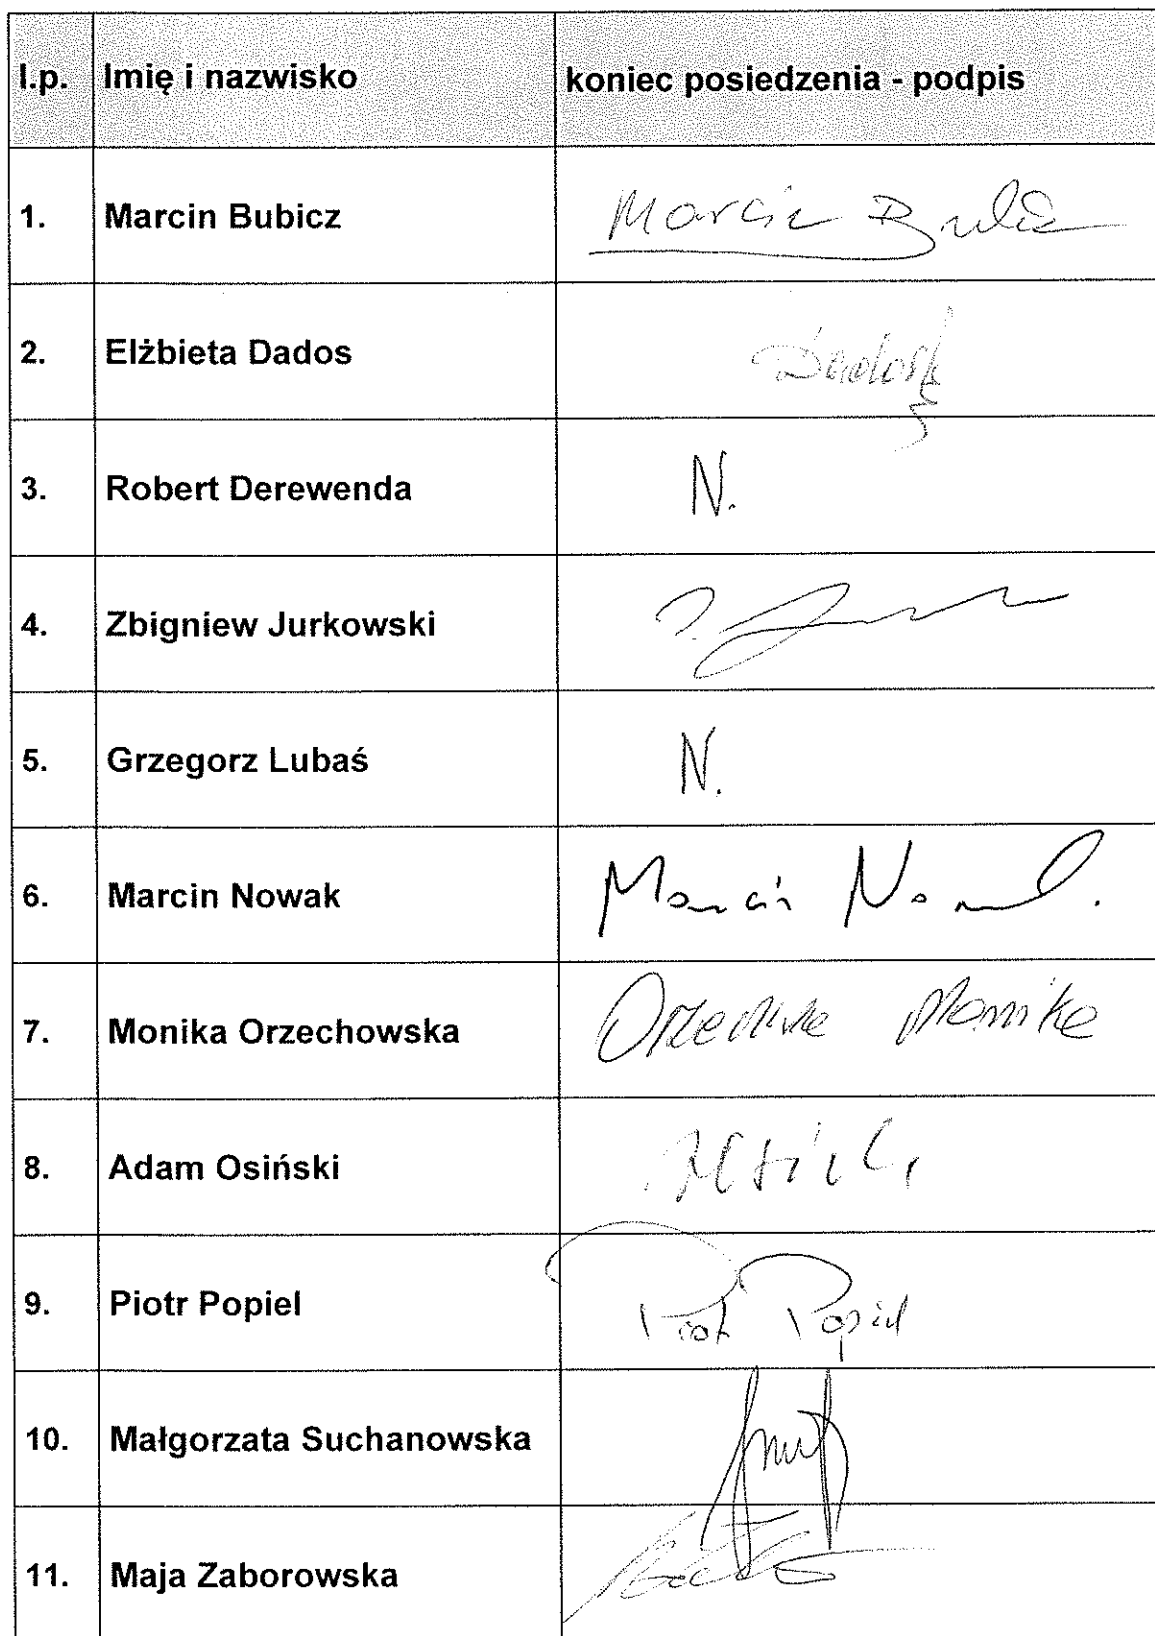 l.p. Imię i nazwisko koniec posiedzenia - podpis
1. Marcin Bubicz Marcin
2. Elżbieta Dados
3. Robert Derewenda N.
4. Zbigniew Jurkowski
5. Grzegorz Lubaś N.
6. Marcin Nowak Marcin Nowak.
7. Monika Orzechowska Monika
8. Adam Osiński
9. Piotr Popiel Piotr Popiel
10. Małgorzata Suchanowska
11. Maja Zaborowska